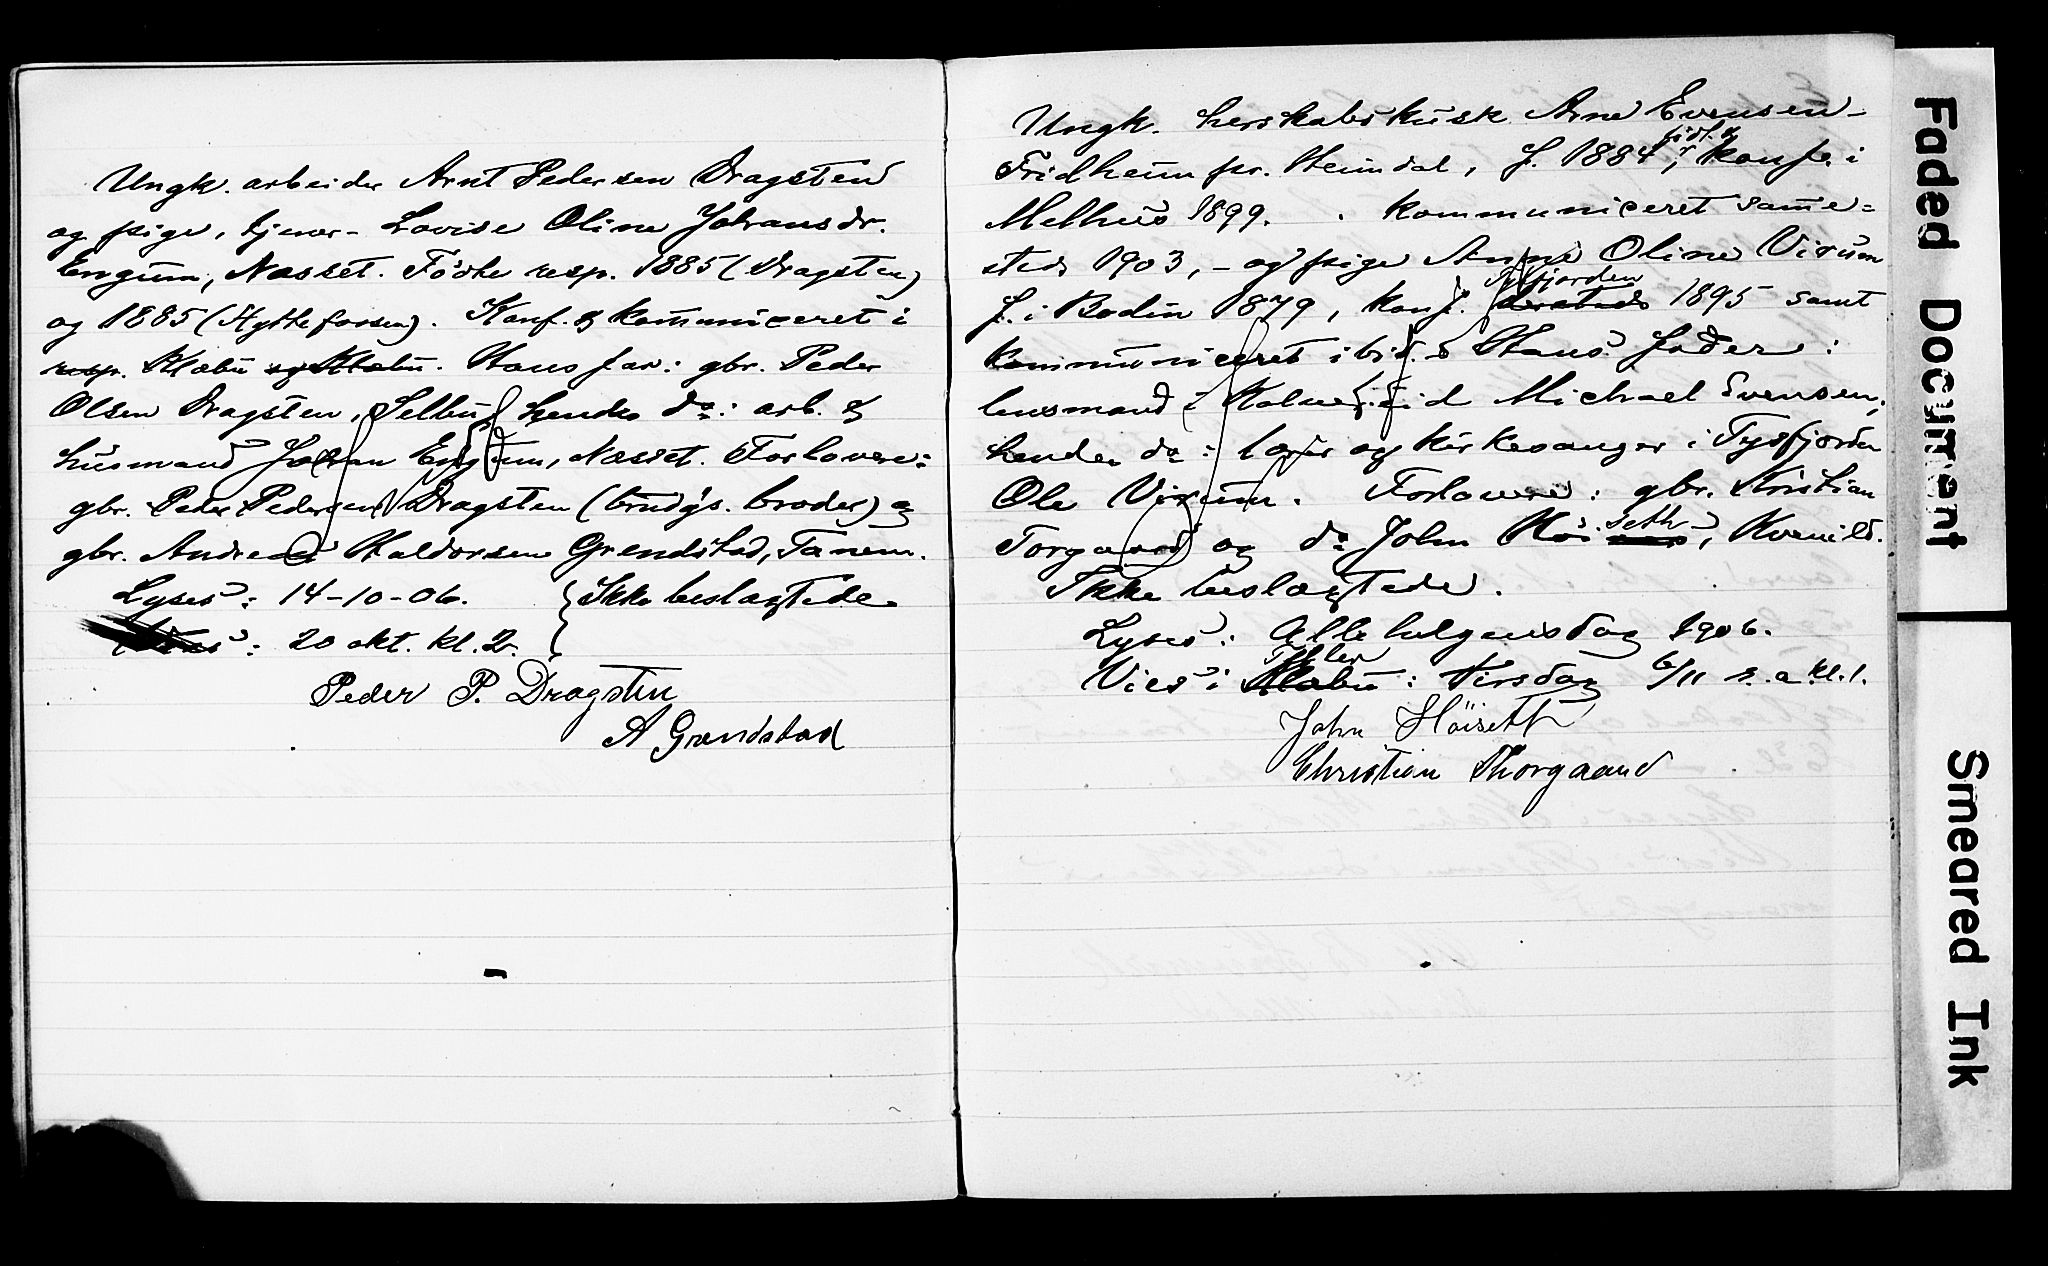 Ungk. arbeider Arnt Pedersen Dragsten
og pige, tjener- Lovise Oline Johansdr.
Engum, Næsset. Födte resp. 1885 (Dragsten)
og 1885 (Hyttefossen). Konf. & kommuniceret i
resp. Klæbu og Klæbu. Hans far: gbr. Peder
Olsen Dragsten, Selbu, hendes do: arb. &
husmand Johan Engum, Næsset. Forlovere:
gbr. Peder Pedersen Dragsten (brudgs. broder) &
gbr. Andreas Haldorsen Grendstad, Tanem.
Lyses: 14-10-06. Ikke beslægtede
: 20 okt. kl. 2.
Peder P. Dragsten
A Grendstad
Ungk. herskabskusk Arne Evensen-
Fridheim pr. Heimdal, f. 1884, födt & konf. i
Melhus 1899. kommuniceret samme=
steds 1903, - og pige Anna Oline Vixum
f. i Bodin 1879, konf. Tysfjorden 1895 samt
kommuniceret ibid. Hans fader:
lensmand i Michael Evensen,
hendes do: lærer og kirkesanger i Tysfjorden
Ole Vixum. Forlovere: gbr. Kristian
Torgaard og do John Höiseth, Kvenild.
Ikke beslægtede.
Lyses: Allehelgensdag 1906.
Vies i Tiller: tirsdag 6/11 s. a kl. 1.
John Höiseth
Christian Thorgaard
Faded Document
Smeared Ink